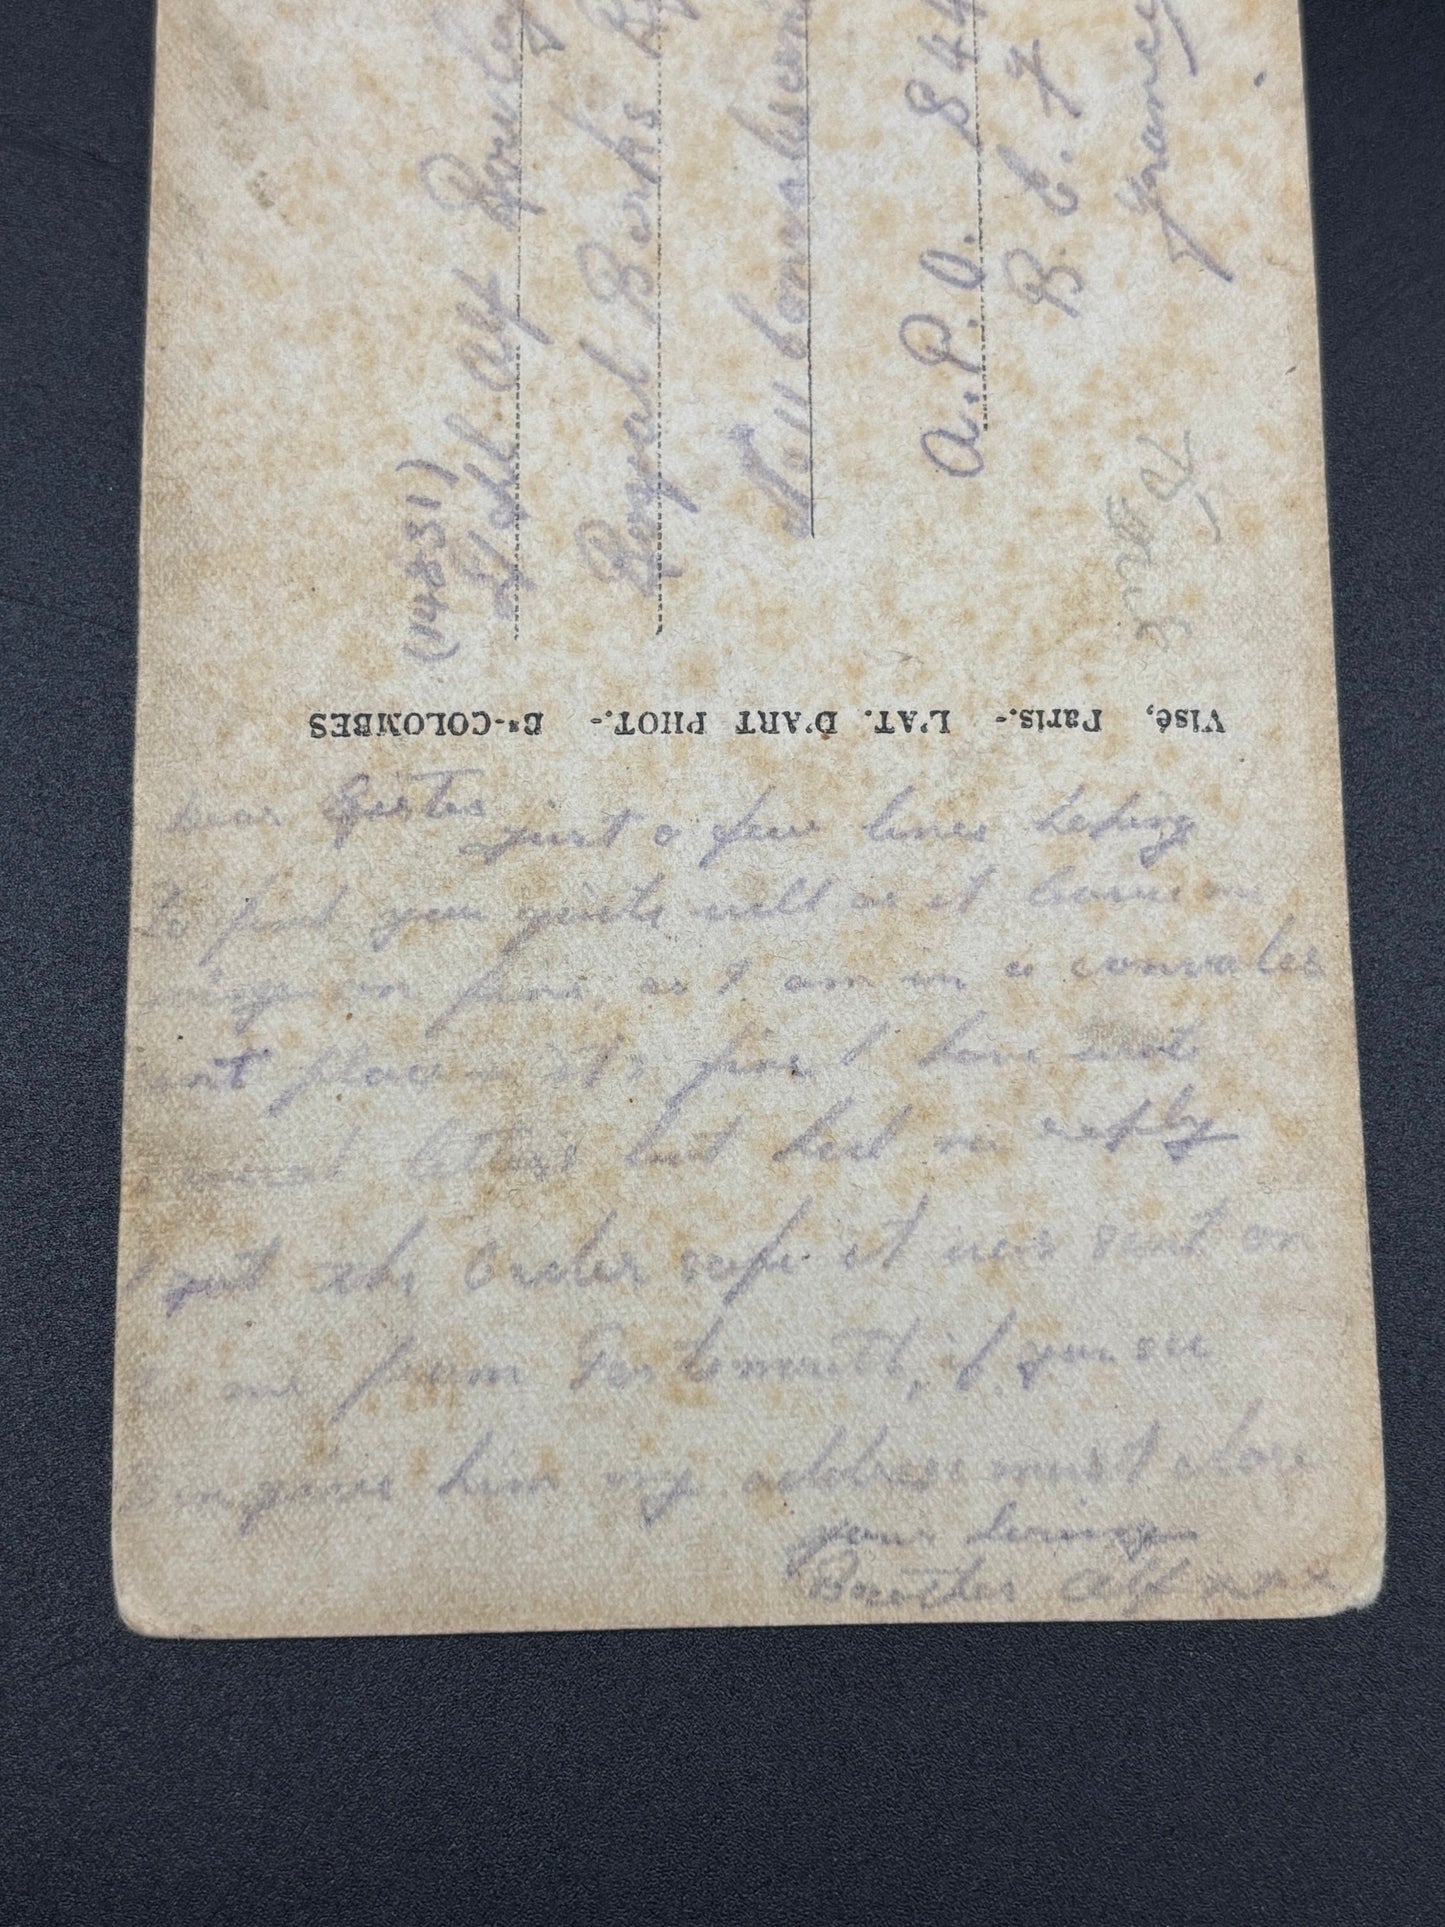 (14831)
Alf Rowley
Royal Berks
No 11 Convalescent
A.P.O. S 44
B. E. F
France
Visé, Paris.- L'AT. D'ART PHOT.- Bs-COLOMBES
Dear Sister
just a few lines hoping
to find you quite well as it leaves me
fine, as I am in a convales
ent place & it's fine I have wrote
letters but had no reply
I got the Order safe it was sent on
to me from Portsmouth, if you see
give him my address must close
your loving
Brother Alf xxx